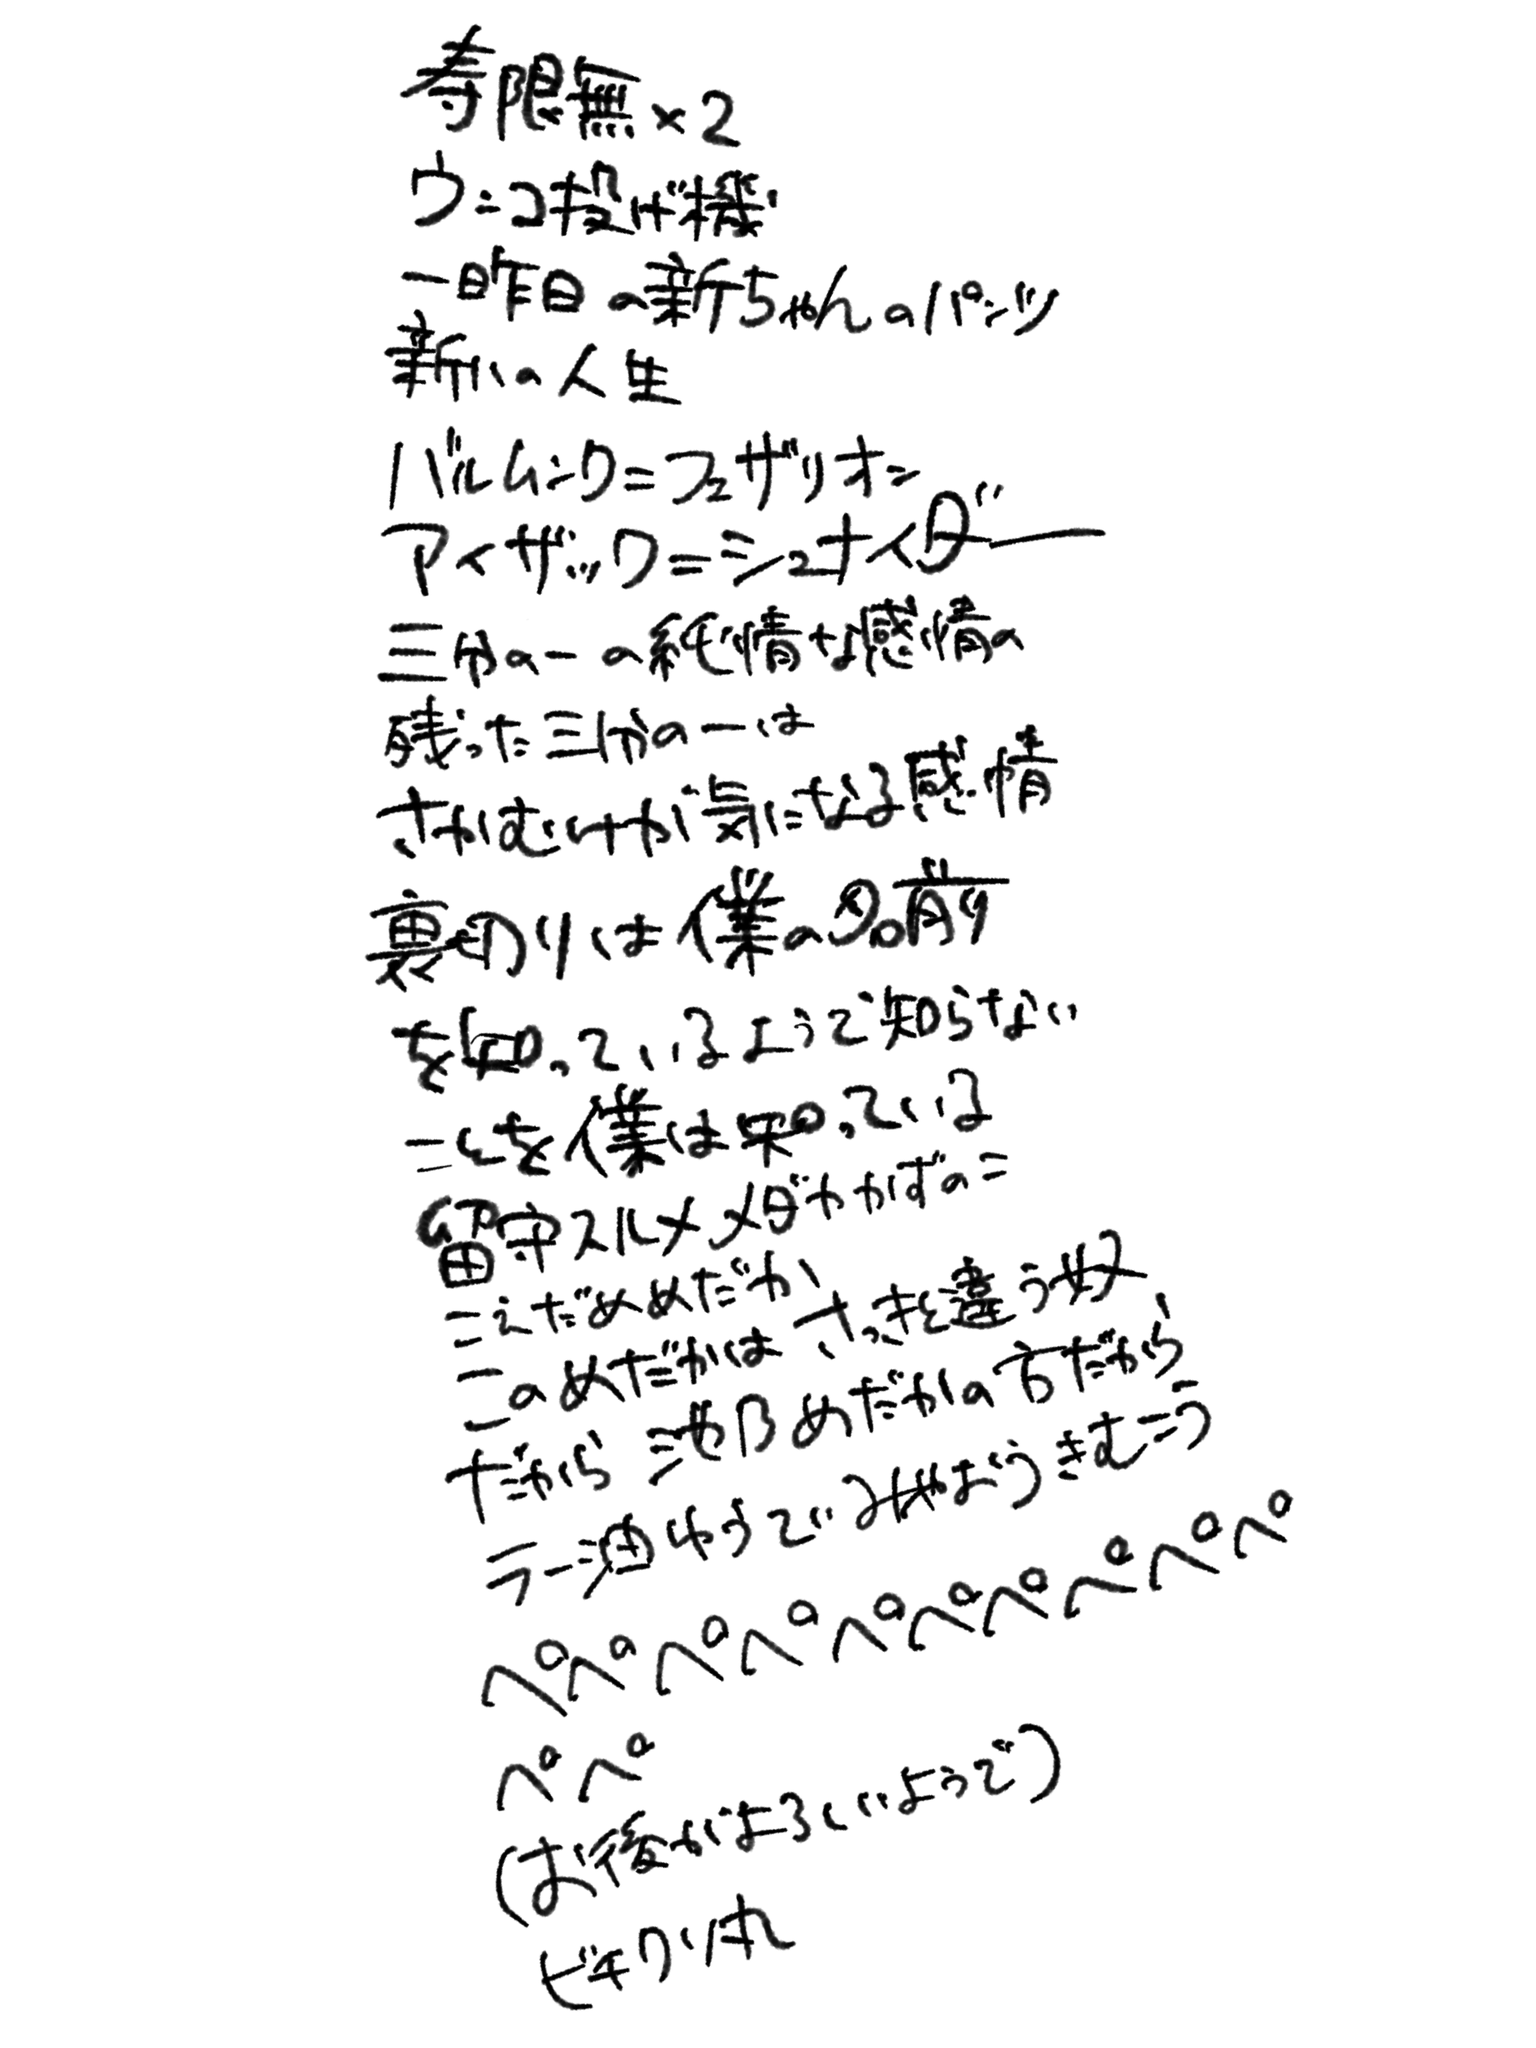 寿限無×2
ウンコ投げ機
一昨日の新ちゃんのパンツ
新八の人生
バルムンク=フェザリオン
アイザック=シュナイダー
三分の一の純情な感情の
残った三分の一は
さかむけが気になる感情
裏切りは僕の名前
を知っているようで知らない
ことを僕は知っている
留守スルメメダかかずのこ
こえだめめだか
このめだかはさっきと違う奴
だから池乃めだかの方だから
ラー油ゆうていみやおうきむこう
ぺぺぺぺぺぺぺぺぺぺ
ぺぺ
(お後がよろしいようで)
ビチクソ丸